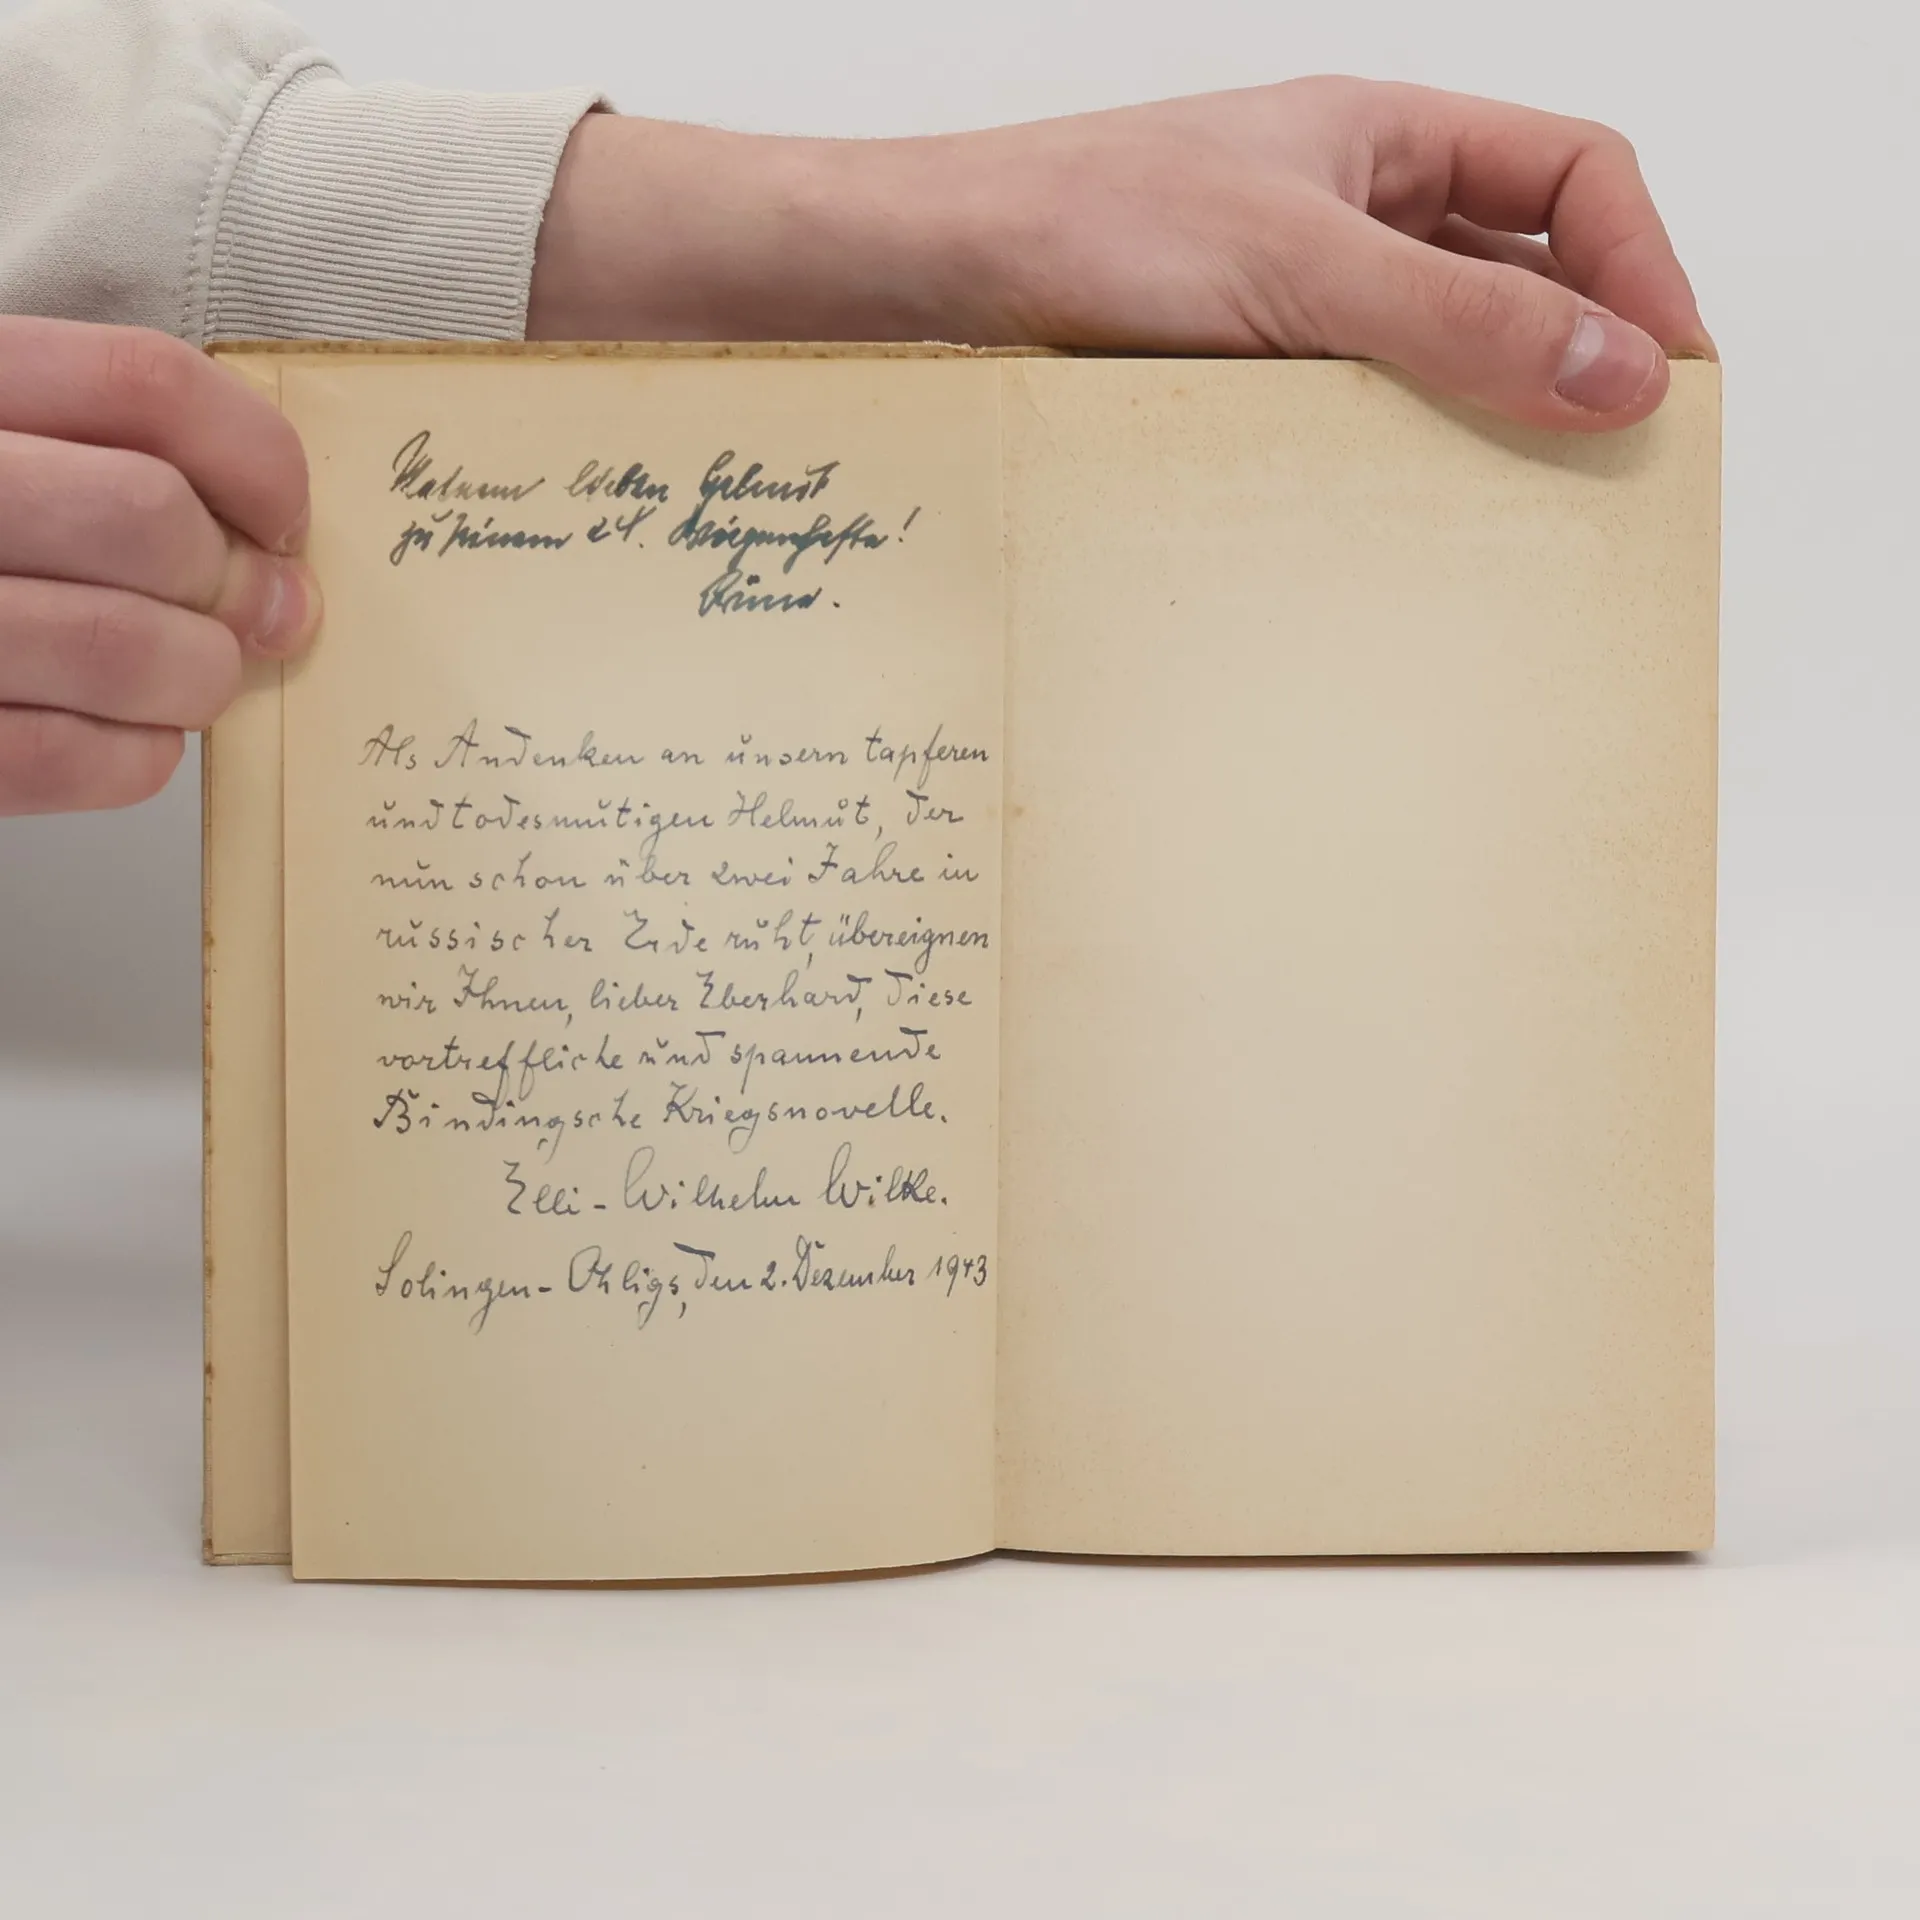 Meinem lieben Helmut
zu seinem 24. Wiegenfeste!
Als Andenken an unsern tapferen
und todesmutigen Helmut, der
nun schon über zwei Jahre in
russischer Erde ruht, übereignen
wir Ihnen, lieber Eberhard, diese
vortreffliche und spannende
Bindingsche Kriegsnovelle.
Elli - Wilhelm Wilke.
Solingen - Ohligs, den 2. Dezember 1943